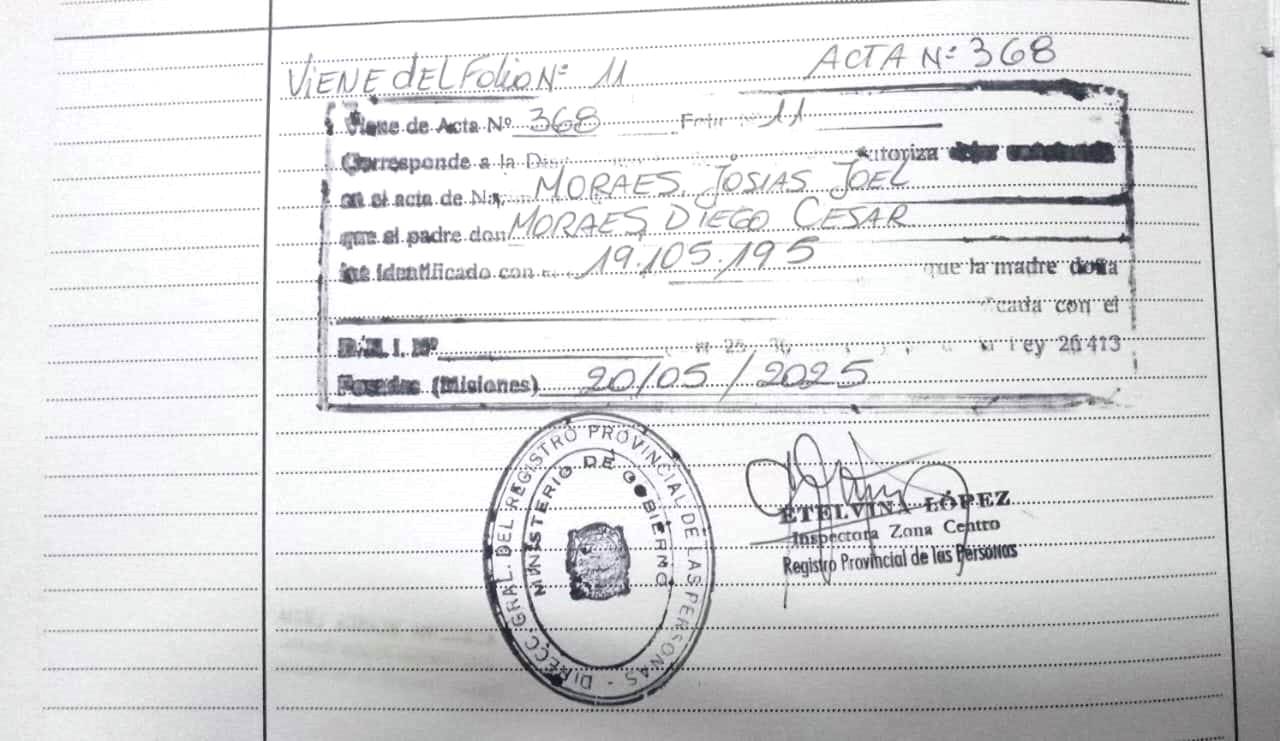 VIENE DEL FOLIO Nº 11 ACTA Nº 368
Viene de Acta Nº 368 Folio 11
Corresponde a la autoriza
en el acta de MORAES, JOSIAS JOEL
que el padre don MORAES, DIEGO CESAR
fue identificado con 19.105.195 que la madre doña
con el
D.N.I. Nº Ley 26413
Posadas (Misiones) 20/05/2025
DIRECC. GRAL. DEL REGISTRO PROVINCIAL DE LAS PERSONAS -
MINISTERIO DE GOBIERNO
ETELVINA LÓPEZ
Inspectora Zona Centro
Registro Provincial de las Personas